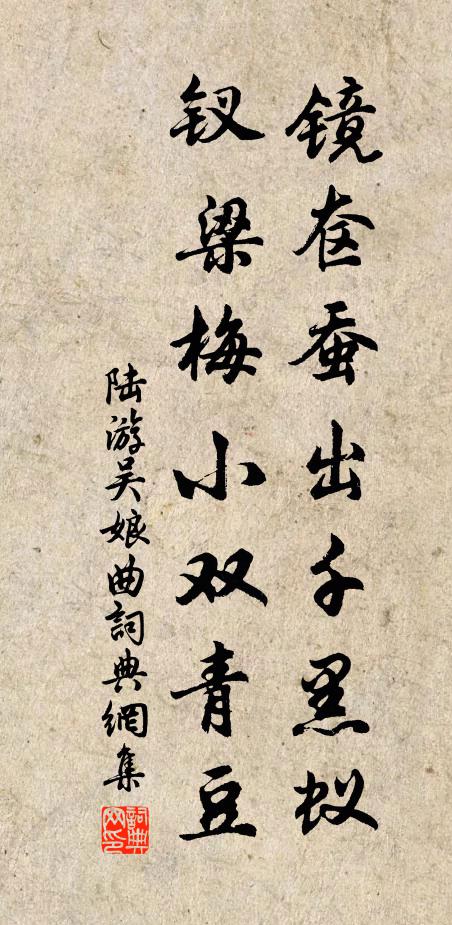 镜奁蚕出千黑蚁
钗梁梅小双青豆
陆游吴娘曲詞典網集
詞典网印